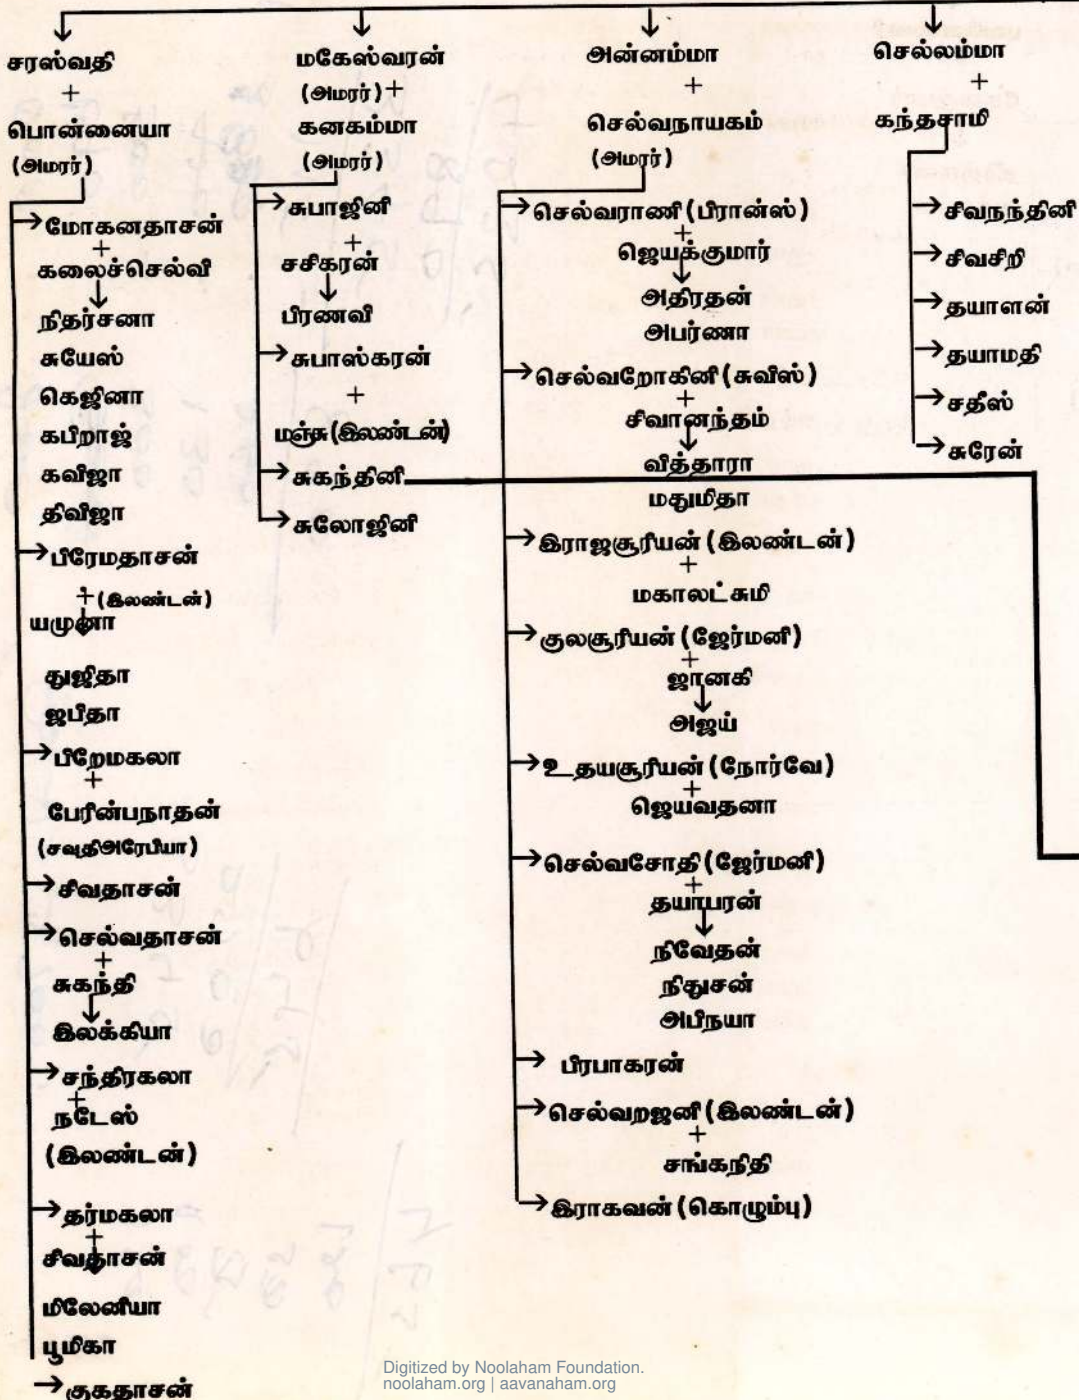 சரஸ்வதி
+
பொன்னையா
(அமரர்)
மோகனதாசன்
+
கலைச்செல்வி
நிதர்சனா
சுயேஸ்
கெஜினா
கபிறாஜ்
கவிஜா
திவிஜா
பிரேமதாசன்
+ (இலண்டன்)
யமுனா
துஜிதா
ஜபிதா
பிறேமகலா
+
பேரின்பநாதன்
(சவுதிஅரேபியா)
சிவதாசன்
செல்வதாசன்
+
சுகந்தி
இலக்கியா
சந்திரகலா
+
நடேஸ்
(இலண்டன்)
தர்மகலா
+
சிவதாசன்
மிலேனியா
பூமிகா
குகதாசன்
மகேஸ்வரன்
(அமரர்) +
கனகம்மா
(அமரர்)
சுபாஜினி
+
சசிகரன்
பிரணவி
சுபாஸ்கரன்
+
மஞ்சு (இலண்டன்)
சுகந்தினி
சுலோஜினி
அன்னம்மா
+
செல்வநாயகம்
(அமரர்)
செல்வராணி (பிரான்ஸ்)
+
ஜெயக்குமார்
அதிரதன்
அபர்ணா
செல்வறோகினி (சுவிஸ்)
+
சிவானந்தம்
வித்தாரா
மதுமிதா
இராஜசூரியன் (இலண்டன்)
+
மகாலட்சுமி
குலசூரியன் (ஜேர்மனி)
+
ஜானகி
அஜய்
உதயசூரியன் (நோர்வே)
+
ஜெயவதனா
செல்வசோதி (ஜேர்மனி)
+
தயாபரன்
நிவேதன்
நிதுசன்
அபிநயா
பிரபாகரன்
செல்வறஜனி (இலண்டன்)
+
சங்கநிதி
இராகவன் (கொழும்பு)
செல்லம்மா
+
கந்தசாமி
சிவநந்தினி
சிவசிறி
தயாளன்
தயாமதி
சதீஸ்
சுரேன்
Digitized by Noolaham Foundation.
noolaham.org | aavanaham.org